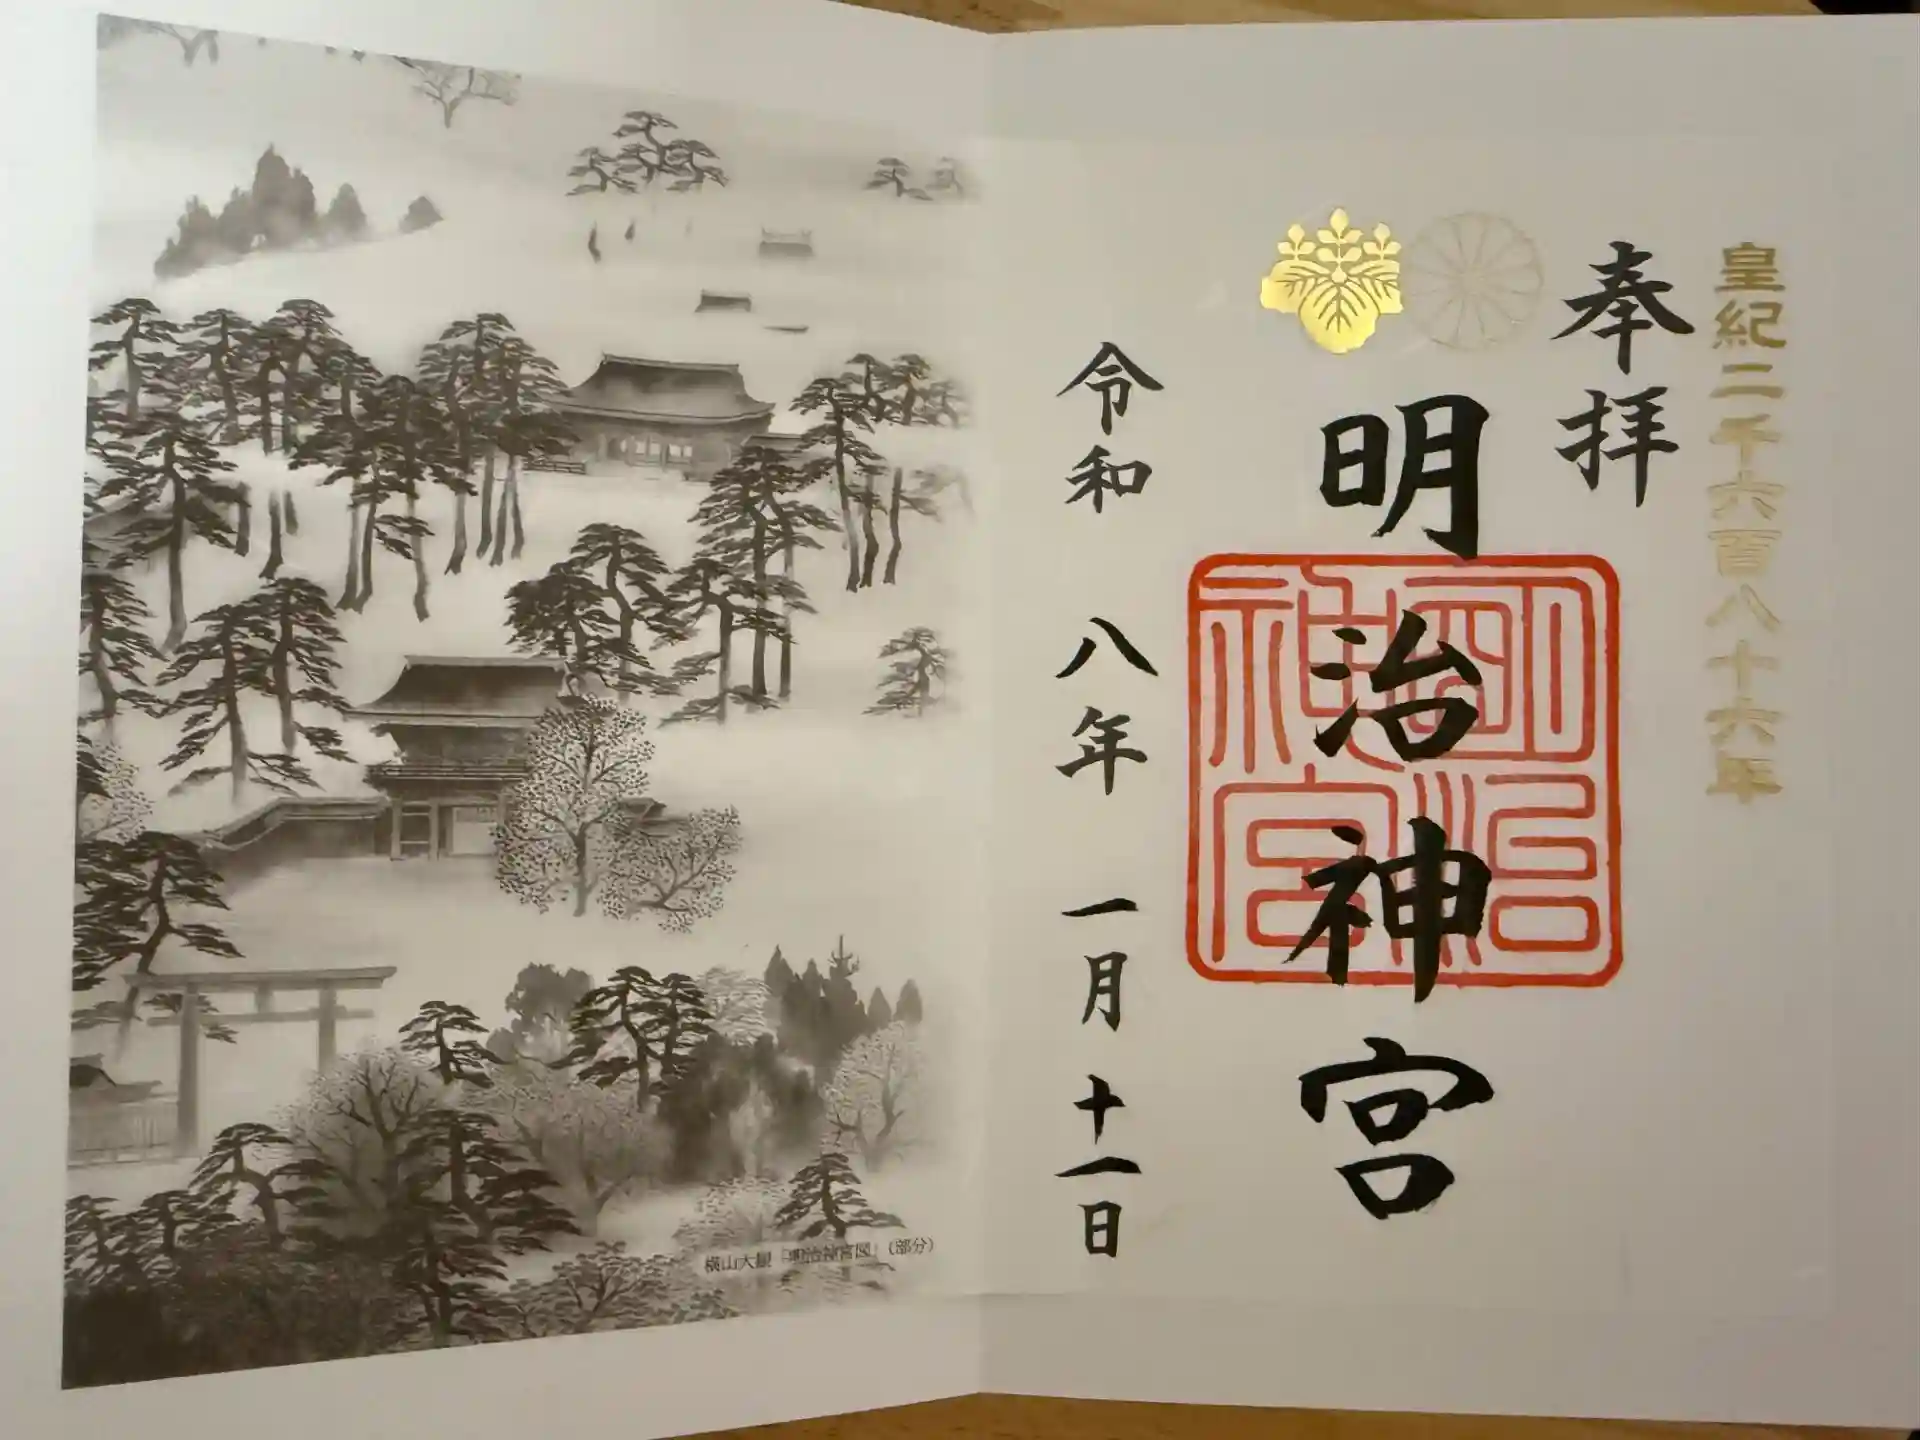 皇紀二千六百八十六年
奉拝
明治神宮
明治神宮
令和八年一月十一日
横山大観「明治神宮図」(部分)